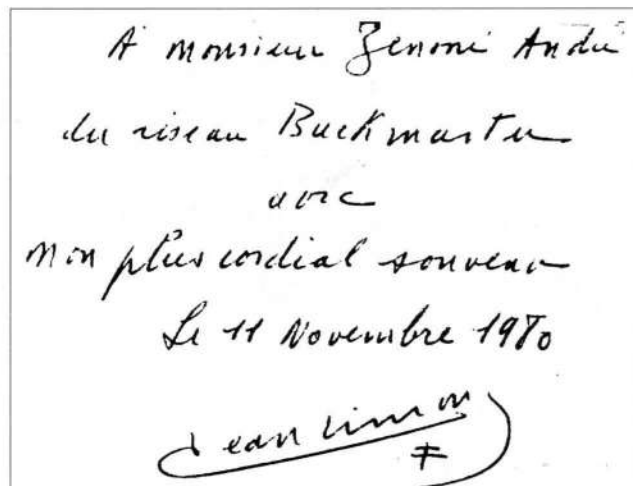 A monsieur Zenoni André
du réseau Buckmaster
avec
mon plus cordial souvenir
Le 11 Novembre 1980
Jean Simon